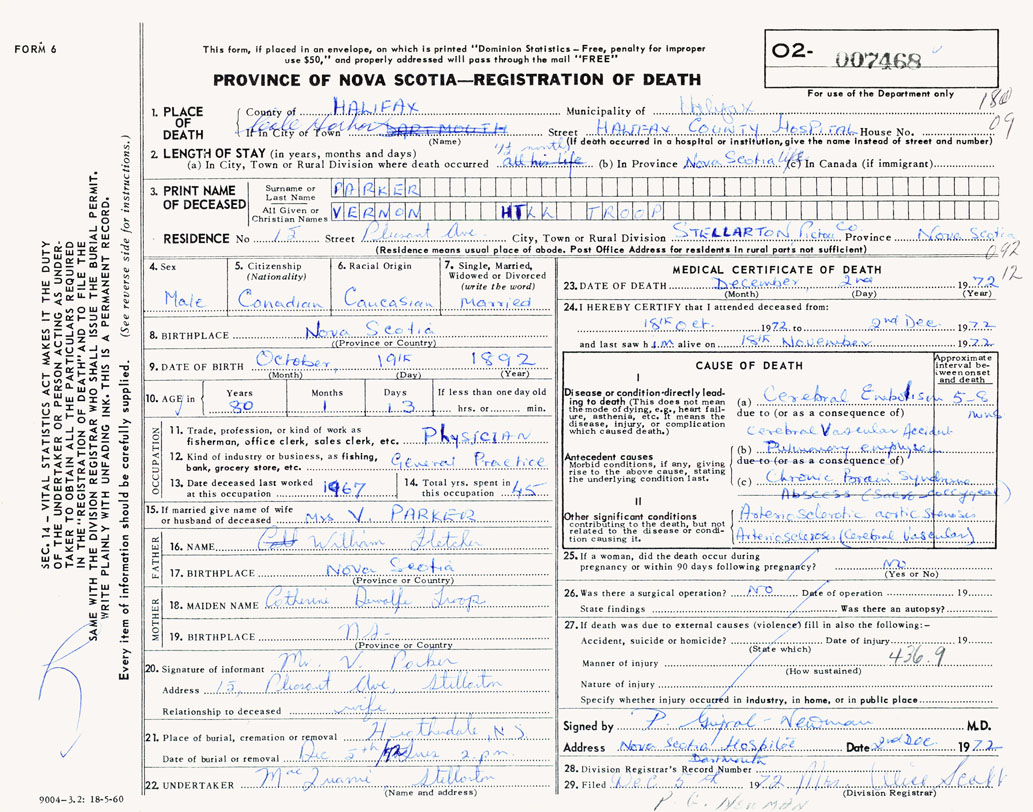 FORM 6
This form, if placed in an envelope, on which is printed "Dominion Statistics – Free, penalty for improper
use $50," and properly addressed will pass through the mail "FREE"
PROVINCE OF NOVA SCOTIA—REGISTRATION OF DEATH
O2- 007468
For use of the Department only
18
09
1. PLACE OF DEATH
County of HALIFAX Municipality of Halifax
If in City or Town DARTMOUTH Street HALIFAX COUNTY HOSPITAL House No.
(Name) (If death occurred in a hospital or institution, give the name instead of street and number)
2. LENGTH OF STAY (in years, months and days)
(a) In City, Town or Rural Division where death occurred all his life (b) In Province Nova Scotia life (c) In Canada (if immigrant)
3. PRINT NAME OF DECEASED
Surname or Last Name PARKER
All Given or Christian Names VERNON TROOP
RESIDENCE No 15 Street Pleasant Ave. City, Town or Rural Division STELLARTON Pictou Co Province Nova Scotia
(Residence means usual place of abode. Post Office Address for residents in rural parts not sufficient)
092
12
4. Sex Male
5. Citizenship (Nationality) Canadian
6. Racial Origin Caucasian
7. Single, Married, Widowed or Divorced (write the word) Married
8. BIRTHPLACE Nova Scotia
(Province or Country)
9. DATE OF BIRTH October, 19th 1892
(Month) (Day) (Year)
10. AGE in Years 80 Months 1 Days 13 If less than one day old hrs. or min.
OCCUPATION
11. Trade, profession, or kind of work as
fisherman, office clerk, sales clerk, etc. PHYSICIAN
12. Kind of industry or business, as fishing,
bank, grocery store, etc. General Practice
13. Date deceased last worked at this occupation 1967
14. Total yrs. spent in this occupation 45
15. If married give name of wife
or husband of deceased Mrs V. PARKER
FATHER
16. NAME William Fletcher
17. BIRTHPLACE Nova Scotia
(Province or Country)
MOTHER
18. MAIDEN NAME Catherine Dewolfe Troop
19. BIRTHPLACE N.S.
(Province or Country
20. Signature of informant V. Parker
Address 15, Pleasant Ave, Stellarton
Relationship to deceased wife
21. Place of burial, cremation or removal Heatherdale, N.S
Date of burial or removal Dec 5th 2 p.m.
22. UNDERTAKER Stellarton
(Name and address)
MEDICAL CERTIFICATE OF DEATH
23. DATE OF DEATH December, 2nd 1972
(Month) (Day) (Year)
24. I HEREBY CERTIFY that I attended deceased from:
18th Oct. 1972 to 2nd Dec. 1972
and last saw him alive on 18th November 1972
CAUSE OF DEATH
Approximate interval between onset and death
I
Disease or condition directly leading to death (This does not mean the mode of dying, e.g., heart failure, asthenia, etc. It means the disease, injury, or complication which caused death.)
(a) Cerebral Embolism 5-8 mins
due to (or as a consequence of)
Cerebral Vascular Accident
Antecedent causes
Morbid conditions, if any, giving rise to the above cause, stating the underlying condition last.
(b) Pulmonary
due to (or as a consequence of)
(c) Chronic Brain Syndrome
Abscess
II
Other significant conditions contributing to the death, but not related to the disease or condition causing it.
Arteriosclerotic aortic stenosis
Arteriosclerosis (Cerebral Vascular)
25. If a woman, did the death occur during
pregnancy or within 90 days following pregnancy? NO
(Yes or No)
26. Was there a surgical operation? NO Date of operation 19
State findings Was there an autopsy?
27. If death was due to external causes (violence) fill in also the following:–
Accident, suicide or homicide? Date of injury 19
(State which)
436.9
Manner of injury
(How sustained)
Nature of injury
Specify whether injury occurred in industry, in home, or in public place
Signed by P. Gujral-Newman M.D.
Address Nova Scotia Hospital Date 2nd Dec. 1972
Dartmouth
28. Division Registrar's Record Number
29. Filed Dec 5th 1972 Mrs. Alice Scott
(Division Registrar)
P. G. NEWMAN
SEC. 14 – VITAL STATISTICS ACT MAKES IT THE DUTY
OF THE UNDERTAKER OR PERSON ACTING AS UNDER-
TAKER TO OBTAIN ALL THE PARTICULARS REQUIRED
IN THE "REGISTRATION OF DEATH" AND TO FILE THE
SAME WITH THE DIVISION REGISTRAR WHO SHALL ISSUE THE BURIAL PERMIT.
WRITE PLAINLY WITH UNFADING INK. THIS IS A PERMANENT RECORD.
Every item of information should be carefully supplied. (See reverse side for instructions.)
9004–3.2: 18-5-60